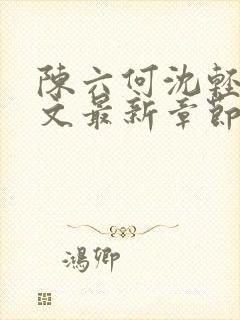 陳六何沈輕
文最新章節
鴻卿